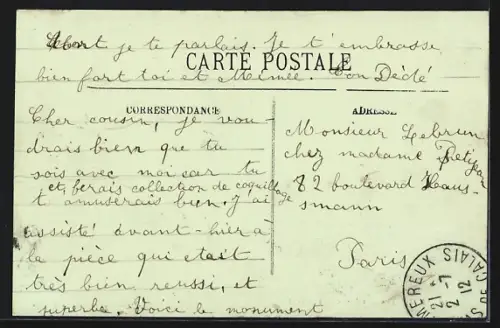 dont je te parlais. Je t'embrasse
bien fort toi et Mimée. Ton Dédé
CARTE POSTALE
CORRESPONDANCE
Cher cousin, je vou-
drais bien que tu
sois avec moi car tu
et ferais collection de coquillage
t'amuserais bien. J'ai
assisté avant-hier à
la pièce qui était
très bien reussi, et
superbe. Voici le monument
ADRESSE
Monsieur Lebrun
chez madame
82 boulevard Haus-
smann
Paris
MEREUX
CALAIS
21-7
12